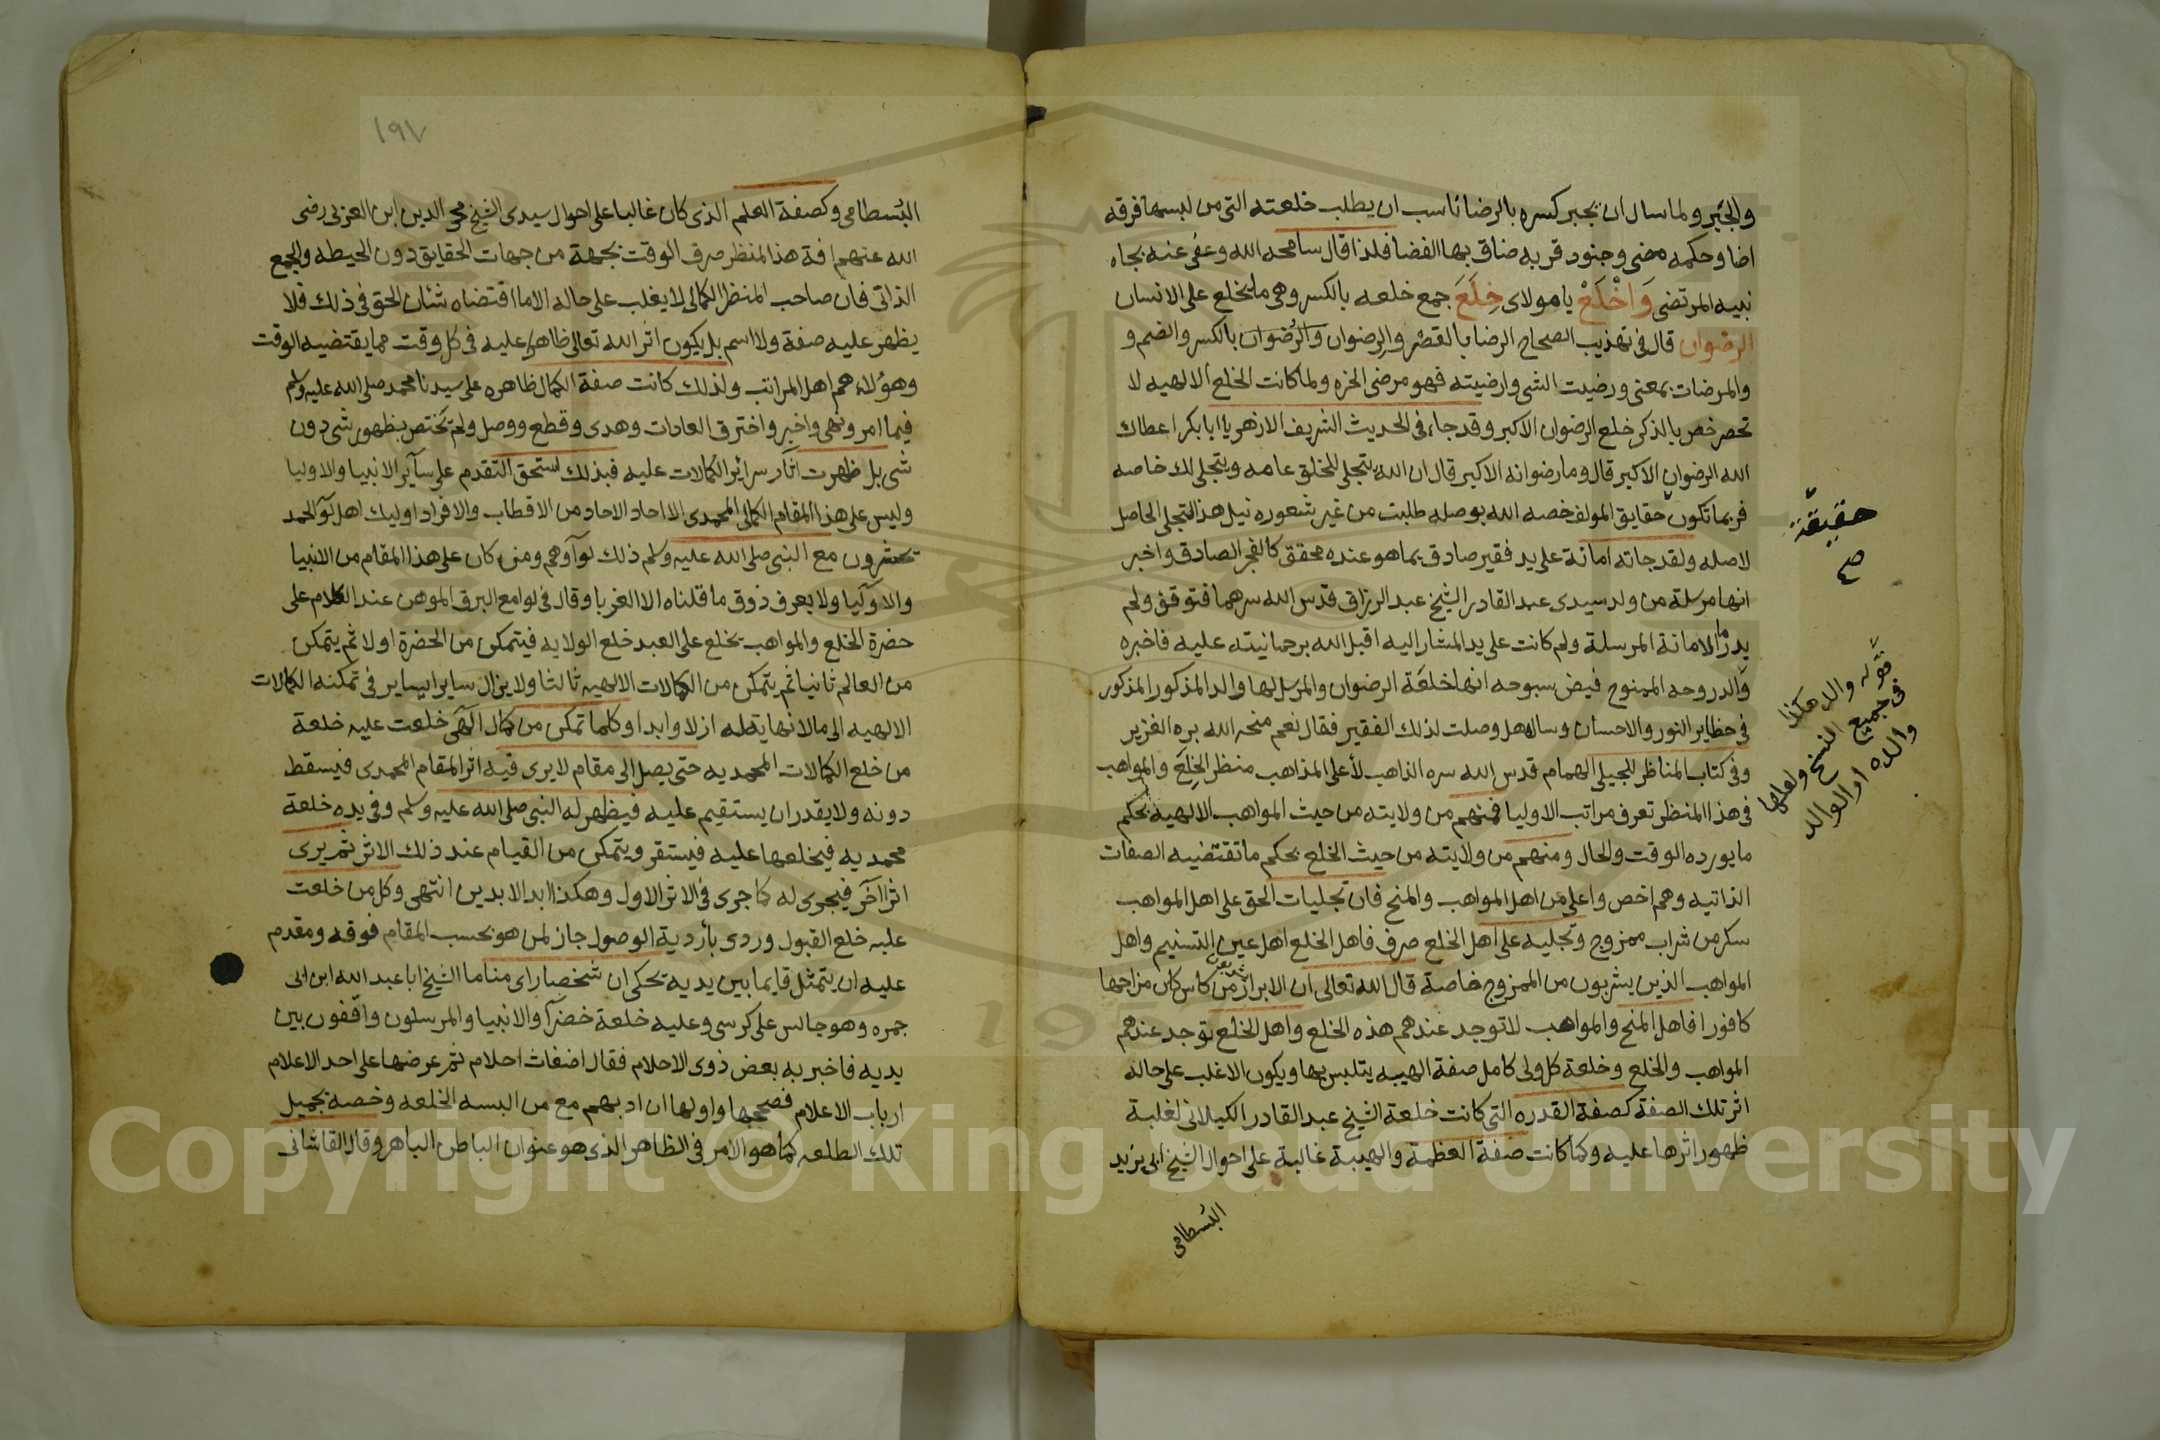 والجبر ولما سال ان يجبر كسره بالرضا ناسب ان يطلب خلعته التى من لبسها فرقه
اضا وحكمه مضى وجنود قربه ضاق بها الفضا فلذا قال سامحه الله وعفى عنه بجاه
نبيه المرتضى وَاخْلَعْ يا مولاى خِلَعَ جمع خلعه بالكسر وهى ما يخلع على الانسان
الرضوان قال فى تهذيب الصحاح الرضا بالقصر والرِضوان والرُضوان بالكسر والضم و
والمرضات بمعنى ورضيت الشى وارضيته فهو مرضى الخره ولما كانت الخلع الالهيه لا
تحصر خص بالذكر خلع الرضوان الاكبر وقد جاء فى الحديث الشريف الازهر يا ابا بكر اعطاك
الله الرضوان الاكبر قال وما رضوانه الاكبر قال ان الله يتجلى للخلق عامه ويتجلى لك خاصه
فربما تكون حقايق المولف خصه الله بوصله طلبت من غير شعوره نيل هذا التجلى الحاصل
لاصله ولقد جاته امانة على يد فقير صادق بما هو عنده محقق كالفجر الصادق واخبر
انها مرسلة من ولد سيدى عبد القادر الشيخ عبد الرزاق قدس الله سرهما فتوقف ولم
يدر ما الامانة المرسلة ولم كانت على يد المشار اليه اقبل الله برحمانيته عليه فاخبره
والد روحه الممنوح فيض سبوحه انها خلعة الرضوان والمرسل لها والد المذكور المذكور
فى حظاير النور والاحسان وساله هل وصلت لذلك الفقير فقال نعم منحه الله بره الغزير
وفى كتاب المناظر للجيلى الهمام قدس الله سره الذاهب لأعلى المذاهب منظر الخِلَعِ والمواهب
فى هذا المنظر تعرف مراتب الاوليا فمنهم من ولايته من حيث المواهب الالهية بحكم
ما يورده الوقت والحال ومنهم من ولايته من حيث الخلع بحكم ما تقتضيه الصفات
الذاتيه وهم اخص واعلى من اهل المواهب والمنح فان تجليات الحق على اهل المواهب
سكر من شراب ممزوج وتجليه على اهل الخلع صرف فاهل الخلع اهل عين التسنيم واهل
المواهب الذين يشربون من الممزوج خاصة قال الله تعالى ان الابرار يشربون من كاس كان مزاجها
كافورا فاهل المنح والمواهب لا توجد عندهم هذه الخلع واهل الخلع توجد عندهم
المواهب والخلع وخلعة كل ولى كامل صفة الهيه يتلبس بها ويكون الاغلب على حاله
اثر تلك الصفة كصفة القدره التى كانت خلعة الشيخ عبد القادر الكيلانى لغلبة
ظهور اثرها عليه وكما كانت صفة العظمة والهيبة غالبة على احوال الشيخ ابى يزيد
البسطامى
حقيقة
صح
قوله والد هكذا
فى جميع النسخ ولعلها
والده او الوالد
١٩٧
البُسطامى وكصفة العلم الذى كان غالبا على احوال سيدى الشيخ محى الدين ابن العربى رضى
الله عنهم افة هذا المنظر صرف الوقت بجهة من جهات الحقايق دون الحيطه والجمع
الذاتى فان صاحب المنظر الكمالى لا يغلب على حاله الا ما اقتضاه شان الحق فى ذلك فلا
يظهر عليه صفة ولا اسم بل يكون اثر الله تعالى ظاهرا عليه فى كل وقت مما يقتضيه الوقت
وهوُلاء هم اهل المراتب ولذلك كانت صفة الكمال ظاهره على سيدنا محمد صلى الله عليه وسلم
فيما امر ونهى واخبر واخترق العادات وهدى وقطع ووصل ولم تختص بظهور شى دون
شى بل ظهرت اثار سرائر الكمالات عليه فبذلك استحق التقدم على سآير الانبيا والاوليا
وليس على هذا المقام الكمالى المحمدى الا احاد الاحاد من الاقطاب والافراد اوليك اهل لوآ الحمد
تحشرون مع النبى صلى الله عليه وسلم ذلك لوآوهم ومن كان على هذا المقام من الانبيا
والاوليا ولا يعرف ذوق ما قلناه الا الغربا وقال فى لوامع البرق الموهن عند الكلام على
حضرة الخلع والمواهب يخلع على العبد خلع الولايه فيتمكن من الحضرة اولا ثم يتمكن
من العالم ثانيا ثم يتمكن من الكمالات الالهيه ثالثا ولا يزال سايرا يساير فى تمكنه الكمالات
الالهيه الى ما لا نهاية له ازلا وابدا وكلما تمكن من كمال الهى خلعت عليه خلعة
من خلع الكمالات المحمديه حتى يصل الى مقام لا يرى فيه اثر المقام المحمدى فيسقط
دونه ولا يقدر ان يستقيم عليه فيظهر له النبى صلى الله عليه وسلم وفى يده خلعة
محمديه فيخلعها عليه فيستقر ويتمكن من القيام عند ذلك الاثر ثم يرى
اثرا آخر فيجرى له كما جرى فى الاثر الاول وهكذا ابد الابدين انتهى وكل من خلعت
عليه خلع القبول وردى بأردية الوصول جاز لمن هو بحسب المقام فوقه ومقدم
عليه ان يتمثل قايما بين يديه تحكى ان شخصا راى مناما الشيخ ابا عبد الله ابن ابى
جمره وهو جالس على كرسى وعليه خلعة خضرآ والانبيا والمرسلون واقفون بين
يديه فاخبر به بعض ذوى الاحلام فقال اضغاث احلام ثم عرضها على احد الاعلام
ارباب الاعلام فصححها واولها ان ادبهم مع من البسه الخلعه وخصه بجميل
تلك الطلعه كما هو الامر فى الظاهر الذى هو عنوان الباطن الباهر وقال القاشانى
Copyright © King Saud University